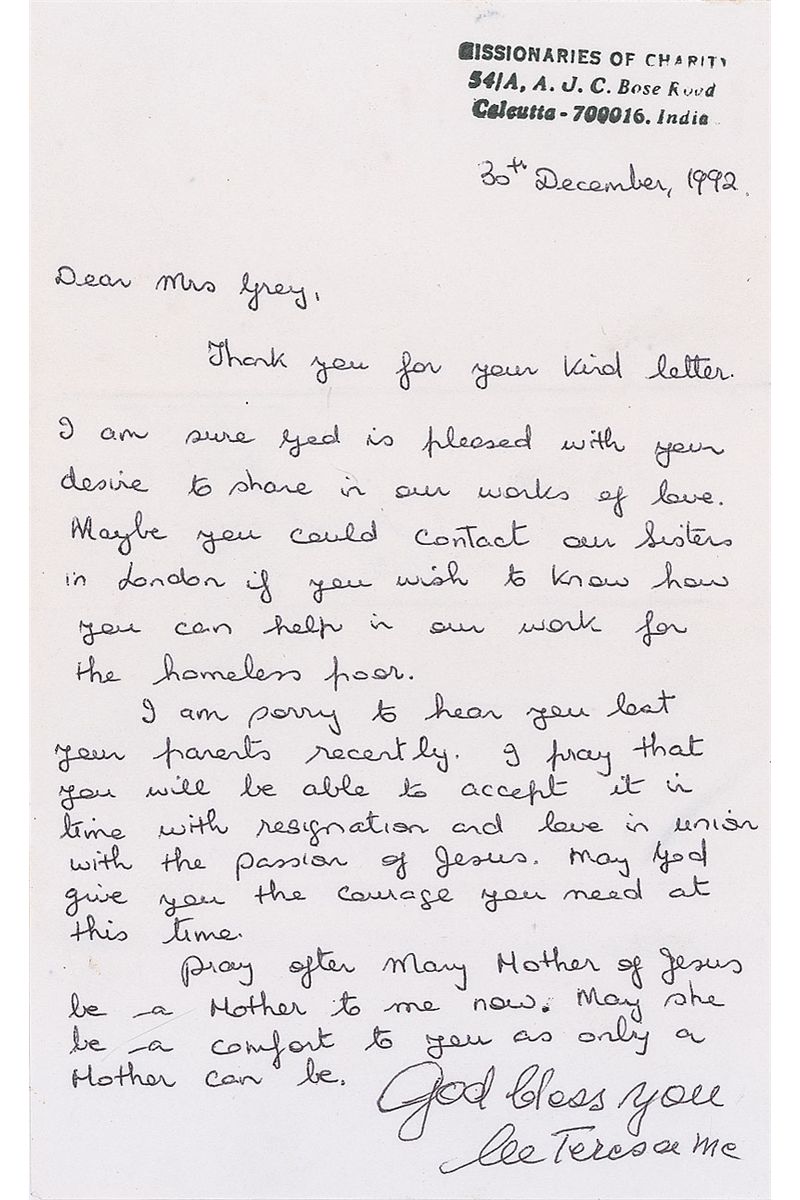 MISSIONARIES OF CHARITY
54/A, A. J. C. Bose Road
Calcutta - 700016. India
30th December, 1992.
Dear Mrs Grey,
Thank you for your kind letter.
I am sure God is pleased with your
desire to share in our works of love.
Maybe you could contact our Sisters
in London if you wish to know how
you can help in our work for
the homeless poor.
I am sorry to hear you lost
your parents recently. I pray that
you will be able to accept it in
time with resignation and love in union
with the passion of Jesus. May God
give you the courage you need at
this time.
Pray often Mary Mother of Jesus
be a Mother to me now. May she
be a comfort to you as only a
Mother can be.
God bless you
lee Teresa mc